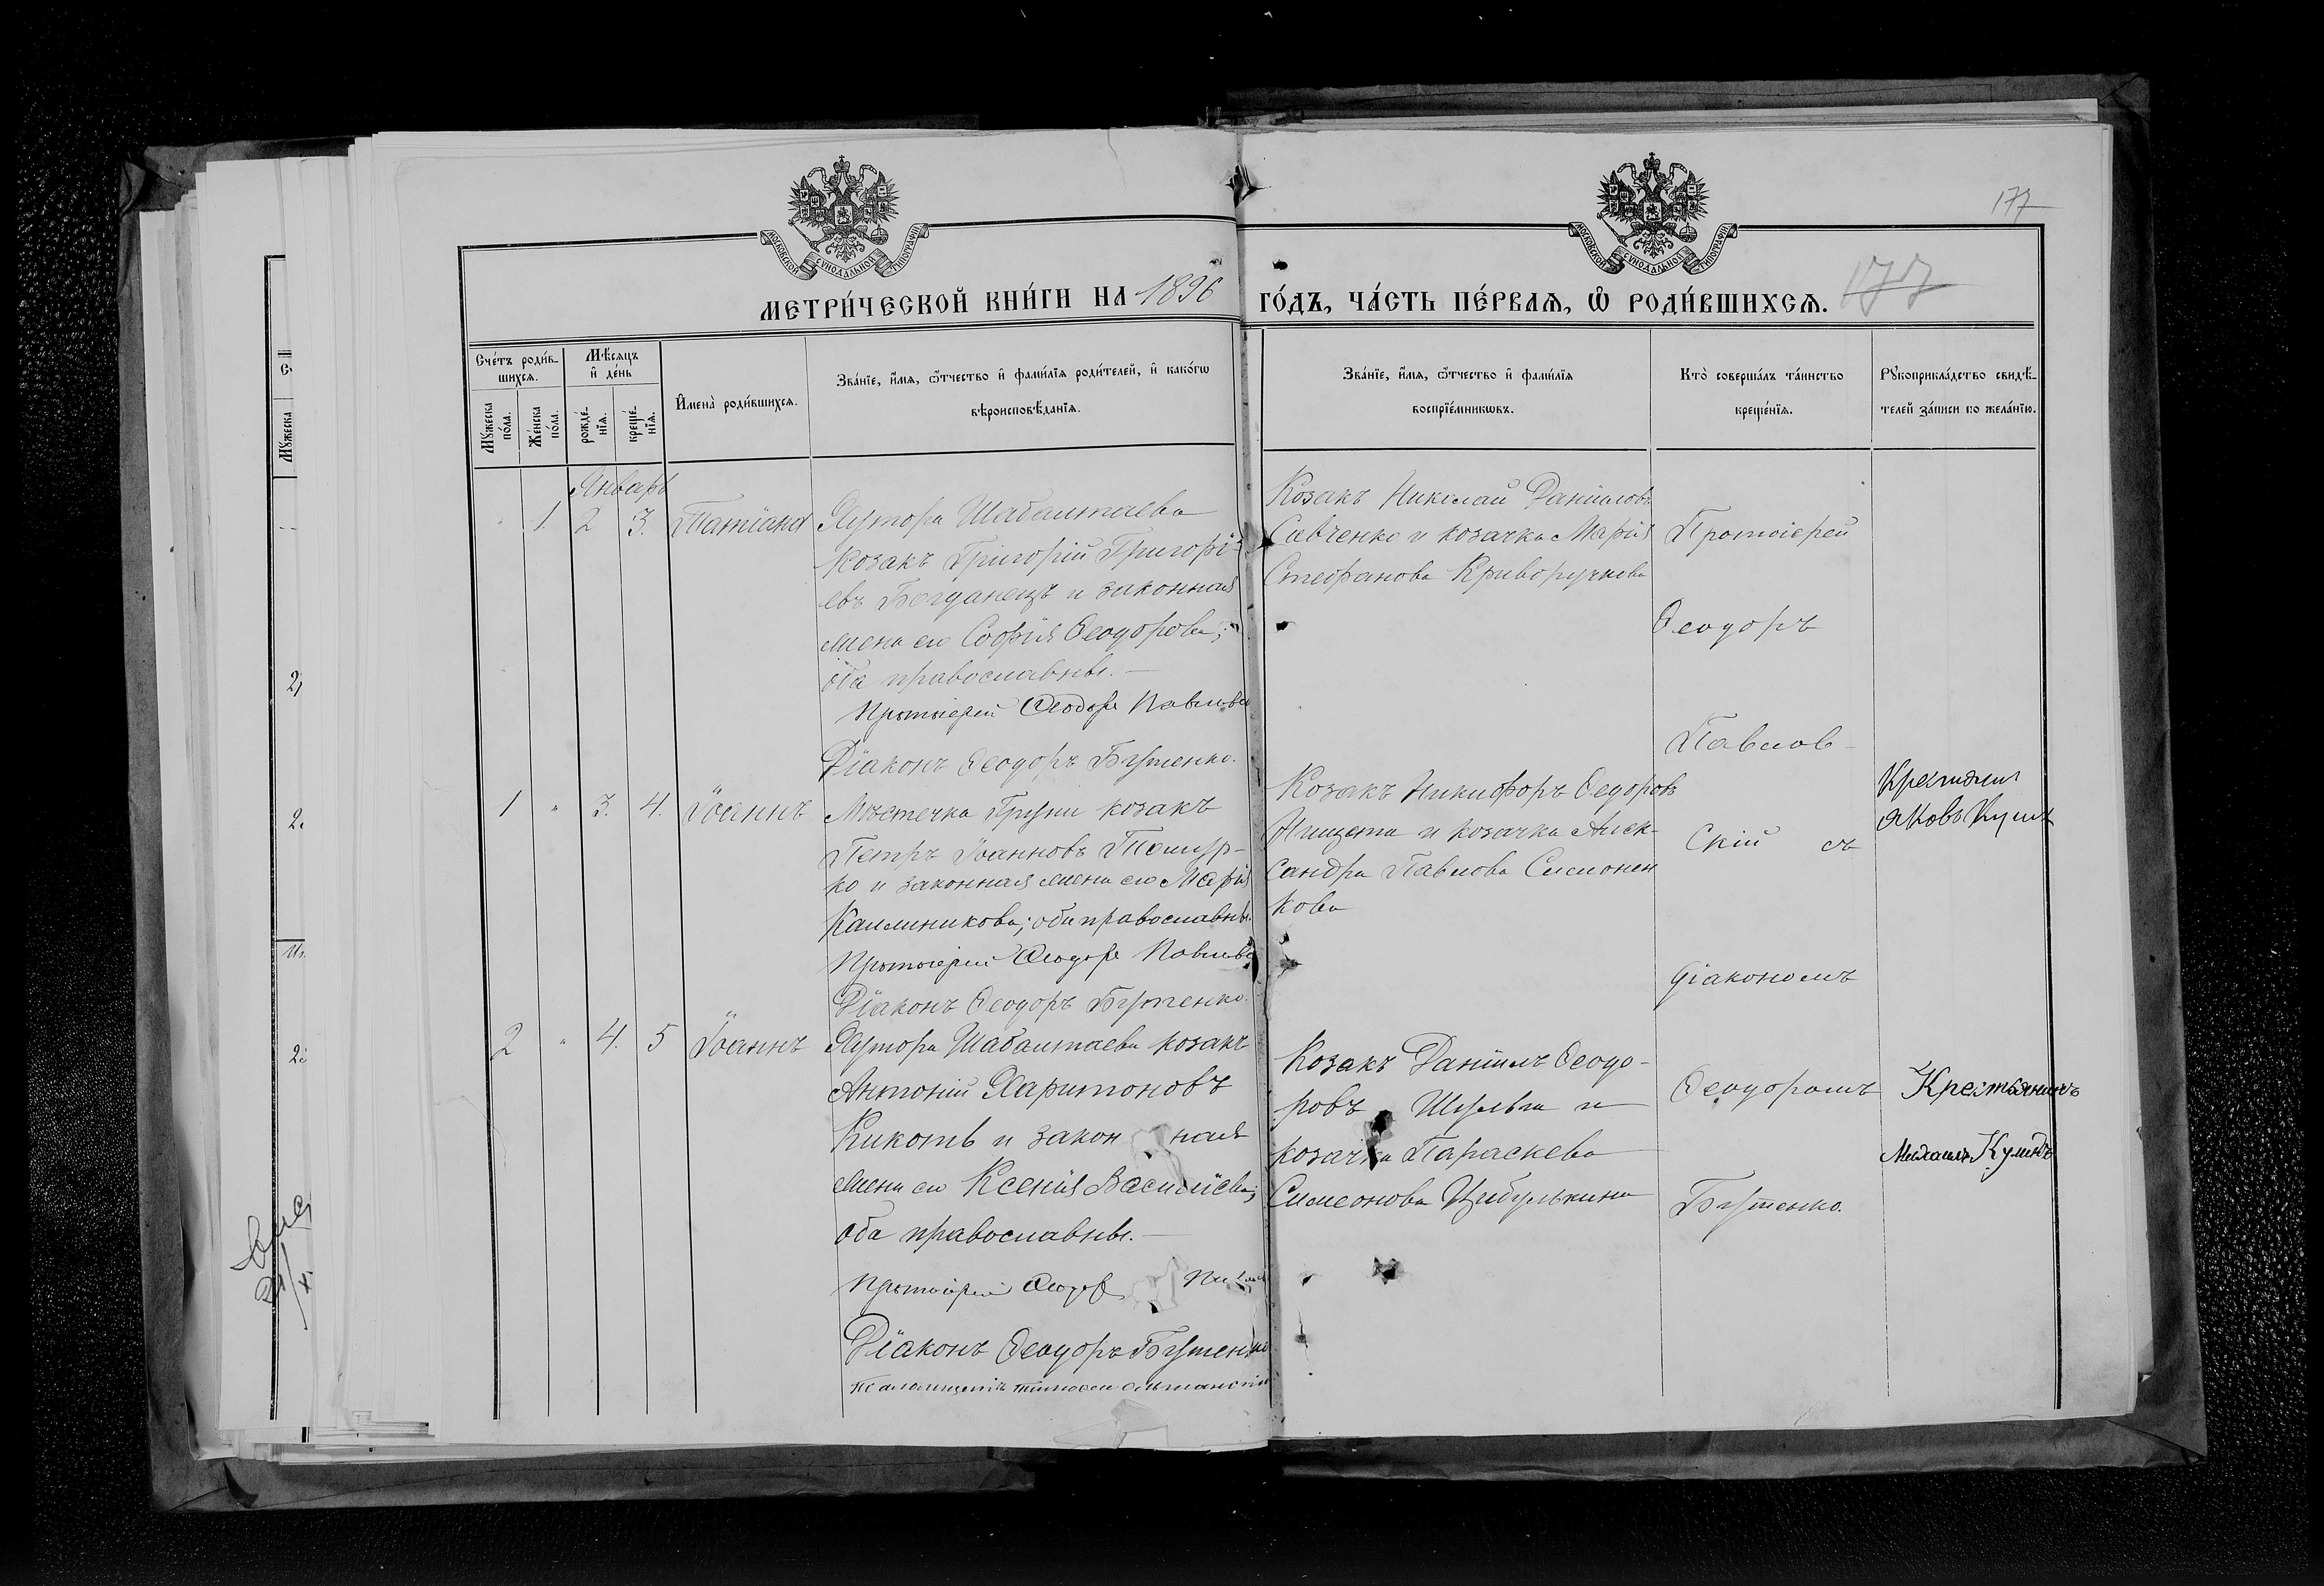 177
МОСКОВСКОЙ СѴНОДАЛЬНОЙ ТИПОГРАФІИ
МОСКОВСКОЙ СѴНОДАЛЬНОЙ ТИПОГРАФІИ
МЕТРИ́ЧЕСКОЙ КНИ́ГИ НА 1896
ГО́ДЪ, ЧА́СТЬ ПЕ́РВАѦ, Ѡ҆ РОДИ́ВШИХСѦ. 177
Сче́тъ роди́в-
шихсѧ.
Мѣ́сѧцъ
и҆ де́нь
Мꙋ́жеска
по́ла.
Же́нска
по́ла.
рожде́-
нїѧ.
креще́-
нїѧ.
И҆мена̀ роди́вшихсѧ.
Зва́нїе, и҆́мѧ, ѻ҆́тчество и҆ фами́лїѧ роди́телей, и҆ како́гѡ
вѣроисповѣ́данїѧ.
Зва́нїе, и҆́мѧ, ѻ҆́тчество и҆ фами́лїѧ
воспрїе́мникѡвъ.
Кто̀ соверша́лъ та́инство
креще́нїѧ.
Рꙋкоприкла́дство свидѣ́-
телей за́писи по жела́нїю.
Январь
1 2 3. Татіана
Хутора Шабалтаева
козакъ Григорій Григорі-
евъ Богданецъ и законная
жена его Софія Ѳеодорова;
оба православны.
Протоіерей Ѳеодоръ Павловс
Діаконъ Ѳеодоръ Бутенко.
Козакъ Николай Даніиловъ
Савченко и козачка Марія
Стефанова Криворучкова
Протоіерей
Ѳеодоръ
Павлов-
скій съ
діакономъ
Ѳеодоромъ
Бутенко.
1 " 3. 4. Іоаннъ
Мѣстечка Груни козакъ
Петръ Іоанновъ
ко и законная жена его Марія
Каллиникова; оба православны.
Протоіерей Ѳеодоръ Павловс
Діаконъ Ѳеодоръ Бутенко.
Козакъ Никифоръ Ѳедоровъ
Нищета и козачка Алек-
сандра Павлова Симонен
кова
Яковъ
2 " 4. 5 Іоаннъ
Хутора Шабалтаева козакъ
Антоній Харитоновъ
Кикоть и закон ная
жена его Ксенія Василіева;
оба православны.
Протоіерей Ѳеодор
Діаконъ Ѳеодоръ Бутенко
Козакъ Даніилъ Ѳеодо-
ровъ Шульга и
козачка Параскева
Симеонова Цибулькина
Крестьянинъ
Михаилъ